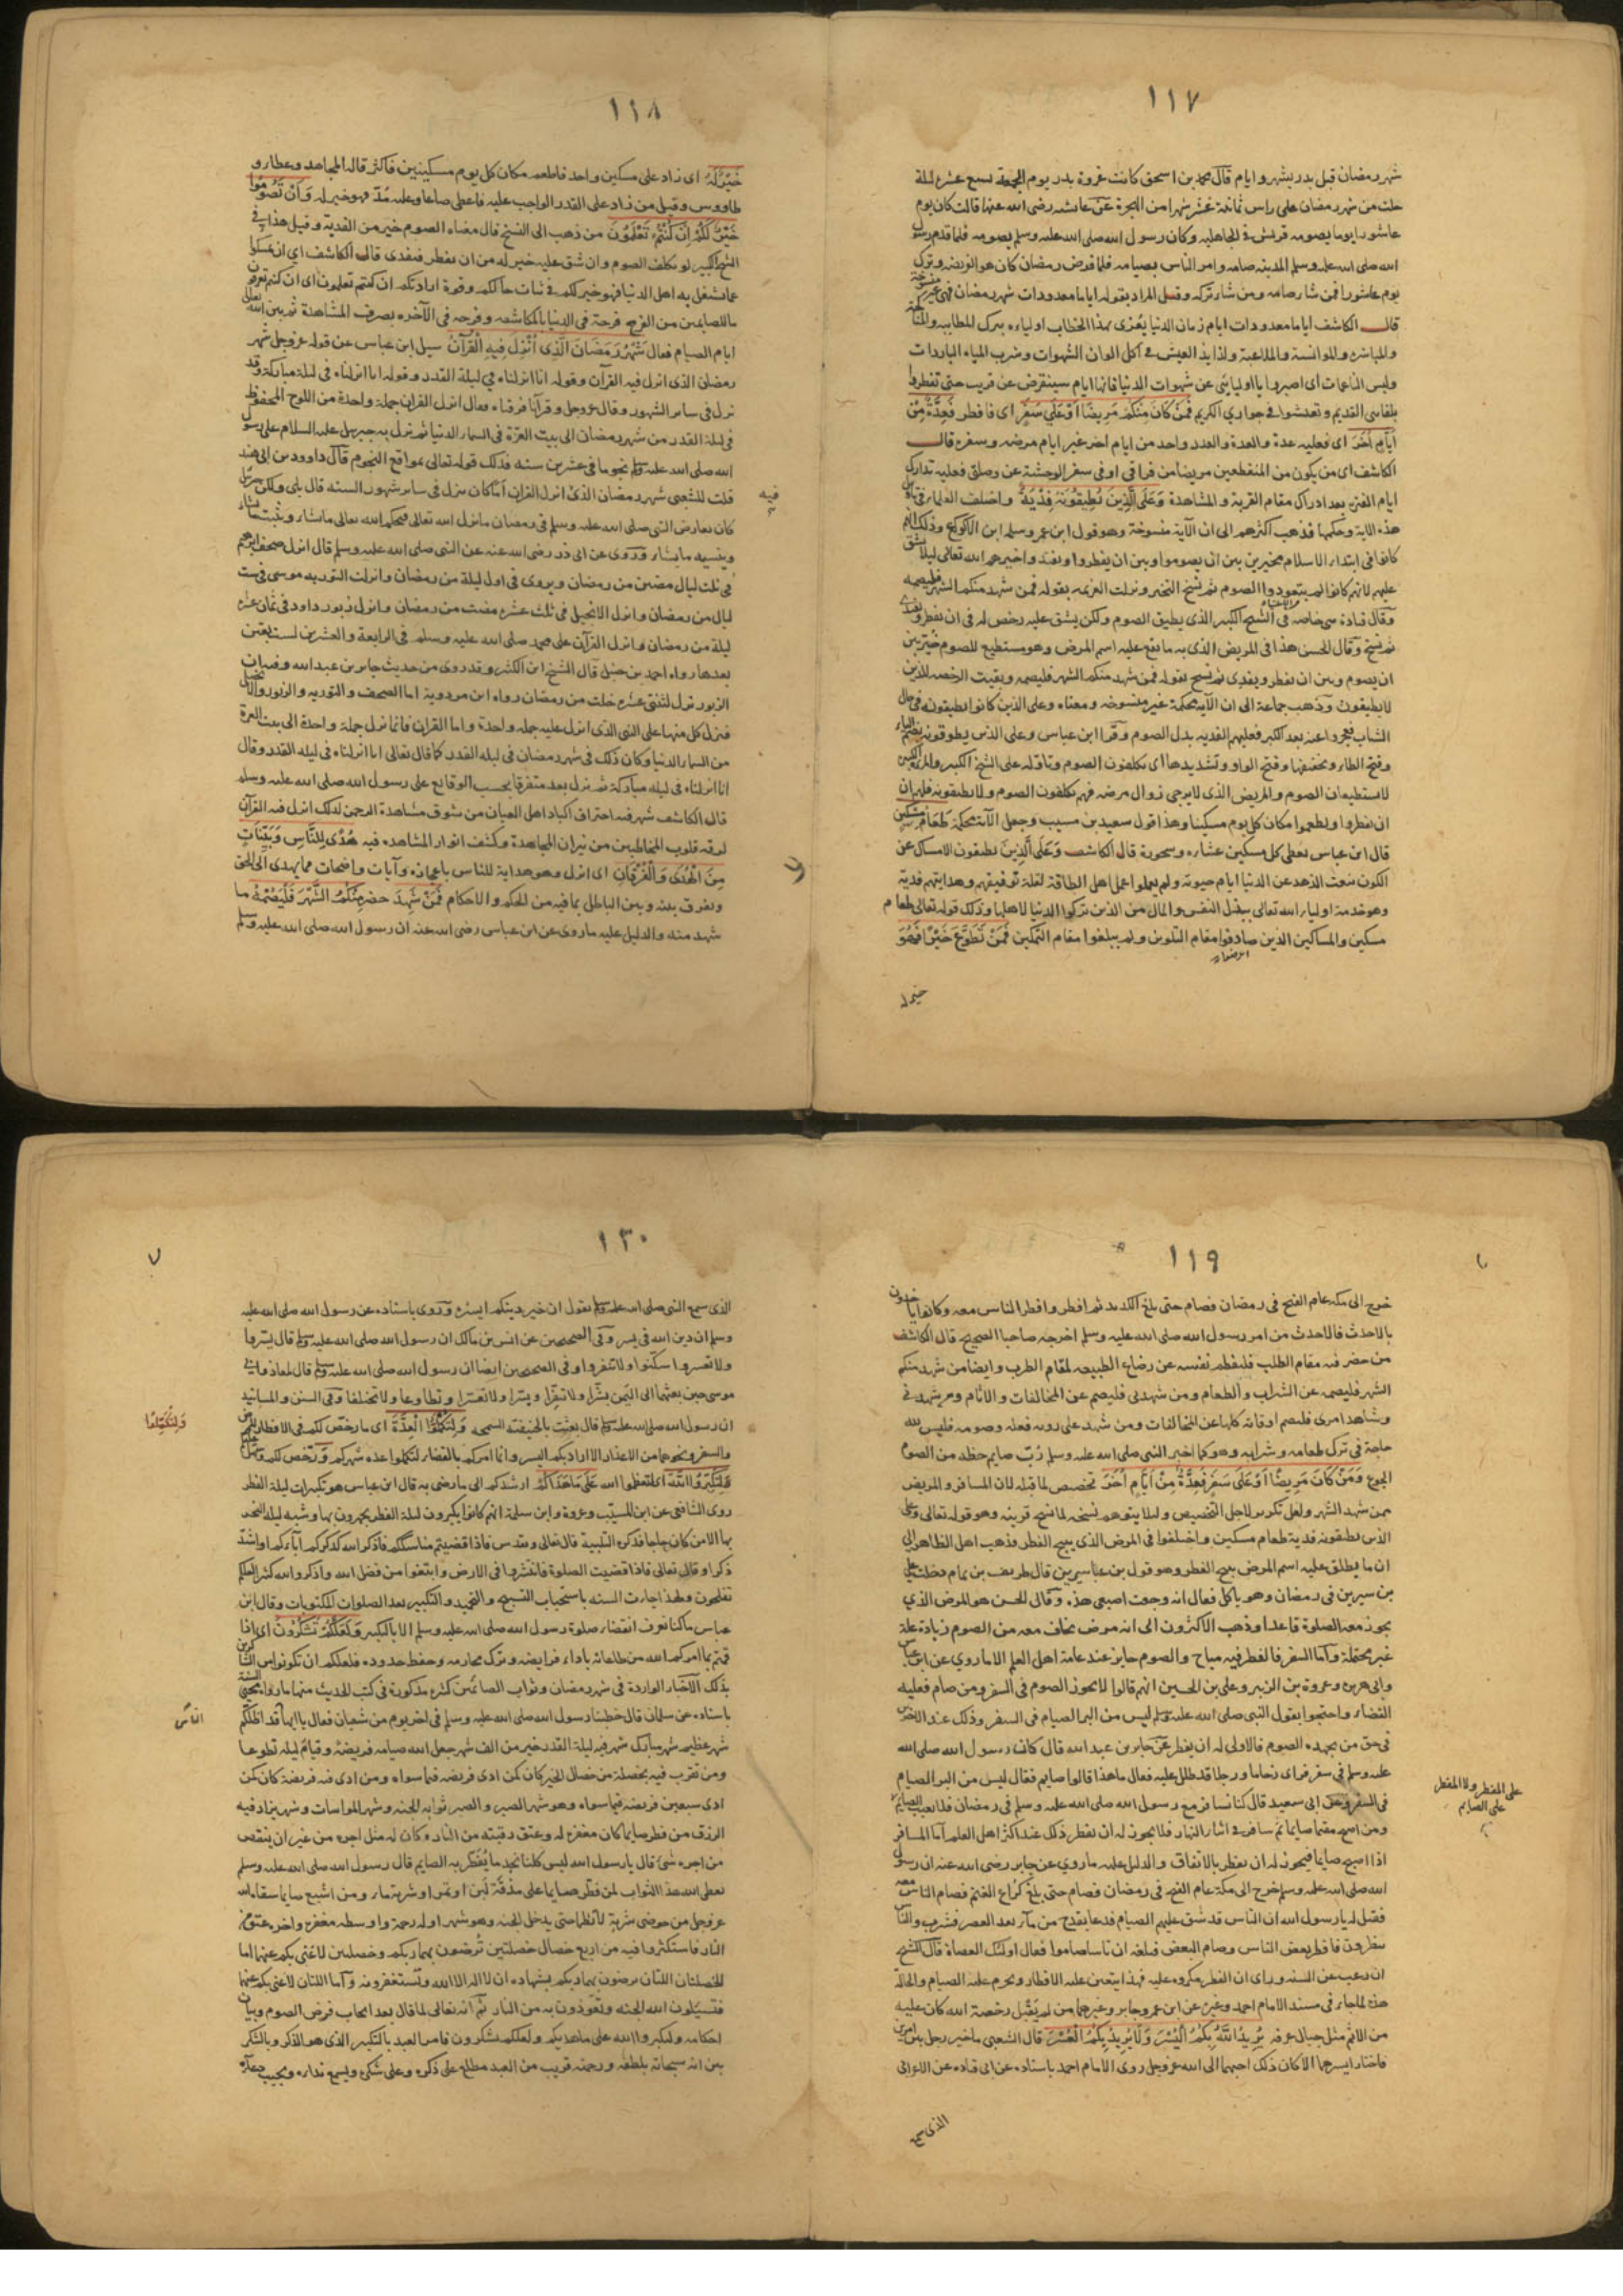 ١١٧
شهر رمضان قبل بدر بشهر وايام قال محمد بن اسحق كانت غزوة بدر يوم الجمعة لسبع عشرة ليلة
خلت من شهر رمضان على راس ثمانية عشر شهرا من الهجرة عن عايشه رضى الله عنها قالت كان يوم
عاشورا يوما يصومه قريش فى الجاهليه وكان رسول الله صلى الله عليه وسلم يصومه فلما قدم رسول
الله صلى الله عليه وسلم المدينه صامه وامر الناس بصيامه فلما فرض رمضان كان هو الفريضه وترك
يوم عاشورا فمن شا صامه ومن شا تركه وقيل المراد بقوله اياما معدودات شهر رمضان فهى غير منسوخة
قال الكاشف اياما معدودات ايام زمان الدنيا يعزى بهذا الخطاب اولياءه بترك المطايبه
والمباشره والموانسة والملاعبة ولذايذ العيش فى اكل الوان الشهوات وشرب المياه الباردات
ولبس الناعمات اى اصبروا يا اوليائى عن شهوات الدنيا فانها ايام سينقرض عن قريب حتى تفطروا
بلقائى القديم وتعيشوا فى جوارى الكريم فَمَنْ كَانَ مِنْكُمْ مَرِيضًا أَوْ عَلَى سَفَرٍ اى فافطر فَعِدَّةٌ مِنْ
أَيَّامٍ أُخَرَ اى فعليه عدة والعدة والعدد واحد من ايام اخر غير ايام مرضه وسفره قال
الكاشف اى من يكون من المنقطعين مريضا من فراقى او فى سفر الوحشة عن وصلى فعليه تدارك
ايام الفترة بعد ادراك مقام القربة والمشاهدة وَعَلَى الَّذِينَ يُطِيقُونَهُ فِدْيَةٌ واختلف العلماء فى تاويل
هذه الاية وحكمها فذهب اكثرهم الى ان الآية منسوخة وهو قول ابن عمر وسلمه ابن الاكوع وذلك انهم
كانوا فى ابتداء الاسلام مخيرين بين ان يصوموا وبين ان يفطروا ويفدوا خيرهم الله تعالى ليلا يشق
عليهم لانهم كانوا لم يتعودوا الصوم ثم نسخ التخيير ونزلت العزيمه بقوله فمن شهد منكم الشهر فليصمه
وقال قتادة هى خاصه فى الشيخ الكبير الذى يطيق الصوم ولكن يشق عليه رخص له فى ان يفطر ويفدى
ثم نسخ وقال الحسن هذا فى المريض الذى به ما يقع عليه اسم المرض وهو مستطيع للصوم خير بين
ان يصوم وبين ان يفطر ويفدى ثم نسخ بقوله فمن شهد منكم الشهر فليصمه وبقيت الرخصه للذين
لا يطيقون وذهب جماعة الى ان الآية محكمة غير منسوخه ومعناه وعلى الذين كانوا يطيقونه فى حال
الشباب فعجزوا عنه بعد الكبر فعليهم الفديه بدل الصوم وقرا ابن عباس وعلى الذين يطوقونه بضم الياء
وفتح الطاء وتخفيفها وفتح الواو وتشديدها اى يكلفون الصوم وتاوله على الشيخ الكبير والمراة الكبيره
لا يستطيعان الصوم والمريض الذى لا يرجى زوال مرضه فهم يكلفون الصوم ولا يطيقونه فلهم ان
ان يفطروا ويطعموا مكان كل يوم مسكينا وهذا قول سعيد بن مسيب وجعل الآية محكمة طَعَامُ مِسْكِينٍ
قال ابن عباس يعطى كل مسكين عشاءه وسحوره قال الكاشف وَعَلَى الَّذِينَ يطيقون الامساك عن
الكون بنعت الزهد عن الدنيا ايام حيوته ولم يعملوا عمل اهل الطاقة لقلة توفيقهم وهدايتهم فدية
وهو خدمة اولياء الله تعالى ببذل النفس والمال من الذين تركوا الدنيا لاهلها وذلك قوله تعالى طعام
مسكين والمساكين الذين صادفوا مقام التلوين ولم يبلغوا مقام التمكين فَمَنْ تَطَوَّعَ خَيْرًا فَهُوَ
خير له
١١٨
خَيْرٌ لَهُ اى زاد على مسكين واحد فاطعم مكان كل يوم مسكينين فاكثر قاله المجاهد وعطا و
طاووس وقيل من زاد على القدر الواجب عليه فاعطى صاعا وعليه مُدّ فهو خير له وَأَنْ تَصُومُوا
خَيْرٌ لَكُمْ إِنْ كُنْتُمْ تَعْلَمُونَ من ذهب الى النسخ قال معناه الصوم خير من الفدية وقيل هذا فى
الشيخ الكبير لو تكلف الصوم وان شق عليه خير له من ان يفطر فيفدى قال الكاشف اى ان تمسكوا
عما يشغل به اهل الدنيا فهو خير لكم فى ثبات حالكم وقوة ارادتكم ان كنتم تعلمون اى ان كنتم تعرفون
ما للصايمين من الفرح فرحة فى الدنيا بالمكاشفه وفرحه فى الآخره بصرف المشاهدة ثم بين الله تعالى
ايام الصيام فقال شَهْرُ رَمَضَانَ الَّذِى أُنْزِلَ فِيهِ الْقُرْآنُ سيل ابن عباس عن قوله عز وجل شهر
رمضان الذى انزل فيه القرآن وقوله انا انزلناه فى ليلة القدر وقوله انا انزلناه فى ليلة مباركة وقد
نزل فى ساير الشهور وقال عز وجل وقرآنا فرقناه فقال انزل القران جملة واحدة من اللوح المحفوظ
فى ليلة القدر من شهر رمضان الى بيت العزة فى السماء الدنيا ثم نزل به جبريل عليه السلام على رسول
الله صلى الله عليه وسلم نجوما فى عشرين سنه فذلك قوله تعالى بمواقع النجوم قال داوود بن ابى هند
قلت للشعبى شهر رمضان الذى انزل القران اما كان ينزل فى ساير شهور السنه قال بلى ولكن جبريل
فيه
كان يعارض النبى صلى الله عليه وسلم فى رمضان ما نزل الله تعالى فيحكم الله تعالى ما يشاء ويثبت ما يشاء
وينسيه ما يشاء وروى عن ابى ذر رضى الله عنه عن النبى صلى الله عليه وسلم قال انزل صحف ابرهيم
فى ثلث ليال مضين من رمضان ويروى فى اول ليلة من رمضان وانزلت التوريه موسى فى ست
ليال من رمضان وانزل الانجيل فى ثلث عشره مضت من رمضان وانزل زبور داود فى ثمان عشره
ليلة من رمضان وانزل القرآن على محمد صلى الله عليه وسلم فى الرابعة والعشرين لست يقين
بعدها رواه احمد بن حنبل قال الشيخ ابن الكثير وقد روى من حديث جابر بن عبد الله وفيه ان
الزبور نزل لثنتى عشره خلت من رمضان رواه ابن مردوية اما الصحف والتوريه والزبور والانجيل
فنزل كل منها على النبى الذى انزل عليه جمله واحدة واما القران فانما نزل جملة واحدة الى بيت العزة
من السماء الدنيا وكان ذلك فى شهر رمضان فى ليله القدر كما قال تعالى انا انزلناه فى ليله القدر وقال
انا انزلناه فى ليله مباركة ثم نزل بعد متفرقا بحسب الوقائع على رسول الله صلى الله عليه وسلم
قال الكاشف شهر فيه احتراق اكباد اهل العيان من شوق مشاهدة الرحمن لذلك انزل فيه القرآن
قلوب المخاطبين من نيران المجاهدة وكشف انوار المشاهده فيه هُدًى لِلنَّاسِ وَبَيِّنَاتٍ
مِنَ الْهُدَى وَالْفُرْقَانِ اى انزل وهو هداية للناس باعجازه وآيات واضحات مما يهدى الى الحق
ويفرق بينه وبين الباطل بما فيه من الحكم والاحكام فَمَنْ شَهِدَ حضر مِنْكُمُ الشَّهْرَ فَلْيَصُمْهُ ما
شهد منه والدليل عليه ما روى عن ابن عباس رضى الله عنه ان رسول الله صلى الله عليه وسلم
١١٩
خرج الى مكه عام الفتح فى رمضان فصام حتى بلغ الكديد ثم افطر وافطر الناس معه وكانوا ياخذون
بالاحدث فالاحدث من امر رسول الله صلى الله عليه وسلم اخرجه صاحبا الصحيح قال الكاشف
من حضر فيه مقام الطلب فليفطم نفسه عن رضاع الطبيعه لمقام الطرب وايضا من شهد منكم
الشهر فليصمه عن الشراب والطعام ومن شهدنى فليصم عن المخالفات والآثام ومن شهد فى
وشاهد امرى فليصم اوقاته كلها عن المخالفات ومن شهد على رويه فعله وصومه فليس لله
حاجة فى ترك طعامه وشرابه وهو كما اخبر النبى صلى الله عليه وسلم رُبّ صايم حظه من الصوم
الجوع وَمَنْ كَانَ مَرِيضًا أَوْ عَلَى سَفَرٍ فَعِدَّةٌ مِنْ أَيَّامٍ أُخَرَ تخصيص لما قبله لان المسافر والمريض
ممن شهد الشهر ولعل تكريره لاجل التخصيص وليلا يتوهم نسخه لما نسخ قرينه وهو قوله تعالى وعلى
الذين يطيقونه فدية طعام مسكين واختلفوا فى المرض الذى يبيح الفطر فذهب اهل الظاهر الى
ان ما يطلق عليه اسم المرض يبيح الفطر وهو قول بن سيرين قال طريف بن تمام دخلت على
بن سيرين فى رمضان وهو ياكل فقال انه وجعت اصبعى هذه وقال الحسن هو المرض الذى
يجوز معه الصلوة قاعدا وذهب الاكثرون الى انه مرض يخاف معه من الصوم زيادة علة
غير محتملة واما السفر فالفطر فيه مباح والصوم جايز عند عامة اهل العلم الا ما روى عن ابن عباس
وابى هريره وعروة بن الزبير وعلى بن الحسين انهم قالوا لا يجوز الصوم فى السفر ومن صام فعليه
القضاء واحتجوا بقول النبى صلى الله عليه وسلم ليس من البر الصيام فى السفر وذلك عند الآخرين
فى حق من يجهده الصوم فالاولى له ان يفطر عن جابر بن عبد الله قال كان رسول الله صلى الله
عليه وسلم فى سفر فراى زحاما ورجلا قد ظلل عليه فقال ما هذا قالوا صايم فقال ليس من البر الصيام
فى السفر وعن ابى سعيد قال كنا نسافر مع رسول الله صلى الله عليه وسلم فى رمضان فلا يعيب الصايم
على المفطر ولا المفطر
على الصايم
ومن اصبح مقيما صايما ثم سافر فى اثناء النهار فلا يجوز له ان يفطر ذلك عند اكثر اهل العلم اما المسافر
اذا اصبح صايما فيجوز له ان يفطر بالاتفاق والدليل عليه ما روى عن جابر رضى الله عنه ان رسول
الله صلى الله عليه وسلم خرج الى مكة عام الفتح فى رمضان فصام حتى بلغ كراع الغيم فصام الناس معه
فقيل له يا رسول الله ان الناس قد شق عليهم الصيام فدعا بقدح من ماء بعد العصر فشرب والناس
ينظرون فافطر بعض الناس وصام البعض فبلغه ان ناسا صاموا فقال اولئك العصاة قال الشيخ
ان رغب عن السنه وراى ان الفطر مكروه عليه فهذا يتعين عليه الافطار ويحرم عليه الصيام والحالة
هذه لما جاء فى مسند الامام احمد وغيره عن ابن عمر وجابر وغيرهما من لم يَقْبَل رخصة الله كان عليه
من الاثم مثل جبال عرفه يُرِيدُ اللهُ بِكُمُ الْيُسْرَ وَلَا يُرِيدُ بِكُمُ الْعُسْرَ قال الشعبى ما خير رجل بين امرين
فاختار ايسرهما الا كان ذلك احبهما الى الله عز وجل روى الامام احمد باسناده عن ابى قتاده عن الاعرابى
الذى سمع
١٣٠
الذى سمع النبى صلى الله عليه وسلم يقول ان خير دينكم ايسره وروى باسناده عن رسول الله صلى الله عليه
وسلم ان دين الله فى يسر وفى الصحيحين عن انس بن مالك ان رسول الله صلى الله عليه وسلم قال يسروا
ولا تعسروا سكّنوا ولا تنفروا وفى الصحيحين ايضا ان رسول الله صلى الله عليه وسلم قال لمعاذ وابى
موسى حين بعثهما الى اليمن بشّرا ولا تنفّرا ويسّرا ولا تعسّرا وتطاوعا ولا تختلفا وفى السنن والمسانيد
ان رسول الله صلى الله عليه وسلم قال بعثت بالحنيفية السمحه وَلِتُكْمِلُوا الْعِدَّةَ اى ما رخص لكم فى الافطار
والسفر ونحوهما من الاعذار الا لارادتكم اليسر وانما امركم بالقضاء لتكملوا عده شهركم ورخص لكم
وَلِتُكَبِّرُوا اللهَ اى لتعظموا الله عَلَى مَا هَدَاكُمْ ارشدكم الى ما رضى به قال ابن عباس هو تكبيرات ليلة الفطر
روى الشافعى عن ابن المسيّب وعروة وابن سلمة انهم كانوا يكبرون ليلة الفطر يجهرون بها وشبه ليلة النحر
بها الا من كان حاجا فذكره التلبية قال تعالى وتقدس فاذا قضيتم مناسككم فاذكروا الله كذكركم آباءكم او اشد
ذكرا وقال تعالى فاذا قضيت الصلوة فانتشروا فى الارض وابتغوا من فضل الله واذكروا الله كثيرا لعلكم
تفلحون ولهذا جاءت السنه باستحباب التسبيح والتحميد والتكبير بعد الصلوات المكتوبات وقال ابن
عباس ما كنا نعرف انقضاء صلوة رسول الله صلى الله عليه وسلم الا بالتكبير وَلَعَلَّكُمْ تَشْكُرُونَ اى اذا
قمتم بما امركم الله من طاعاته باداء فرايضه وترك محارمه وحفظ حدوده فلعلكم ان تكونوا من الشاكرين
بذلك الاخبار الوارده فى شهر رمضان وثواب الصائمين كثيره مذكورة فى كتب الحديث منها ما رواه محيى السنة
باسناده عن سلمان قال خطبنا رسول الله صلى الله عليه وسلم فى اخر يوم من شعبان فقال يا ايها قد اظلكم
الناس
شهر عظيم شهر مبارك شهر فيه ليلة القدر خير من الف شهر جعل الله صيامه فريضة وقيام ليله تطوعا
ومن تقرب فيه بخصلة من خصال الخير كان كمن ادى فريضه فيما سواه ومن ادى فيه فريضة كان كمن
ادى سبعين فريضه فيما سواه وهو شهر الصبر والصبر ثوابه الجنه وشهر المواسات وشهر يزاد فيه
الرزق من فطر صايما كان مغفره له وعتق رقبته من النار وكان له مثل اجره من غير ان ينقص
من اجره شئ قال يا رسول الله ليس كلنا نجد ما يُفطر به الصايم قال رسول الله صلى الله عليه وسلم
يعطى الله هذا الثواب لمن فطر صايما على مذقة لبن او تمر او شربة ماء ومن اشبع صايما سقاه الله
عز وجل من حوضى شربة لا يظما حتى يدخل الجنه وهو شهر اوله رحمة واوسطه مغفره واخره عتق من
النار فاستكثروا فيه من اربع خصال خصلتين تُرضون بهما ربكم وخصلتين لا غنى بكم عنهما اما
الخصلتان اللتان ترضون بهما ربكم بشهادة ان لا اله الا الله وتستغفرونه واما اللتان لا غنى بكم عنهما
فتسئلون الله الجنه وتعوذون به من النار ثم انه تعالى لما قال بعد ايجاب فرض الصوم وبيان
احكامه ولتكبروا الله على ما هديكم ولعلكم تشكرون فامر العبد بالتكبير الذى هو الذكر وبالشكر
بين انه سبحانه بلطفه ورحمته قريب من العبد مطلع على ذكره وعلى شكره ويسمع نداءه ويجيب دعاءه